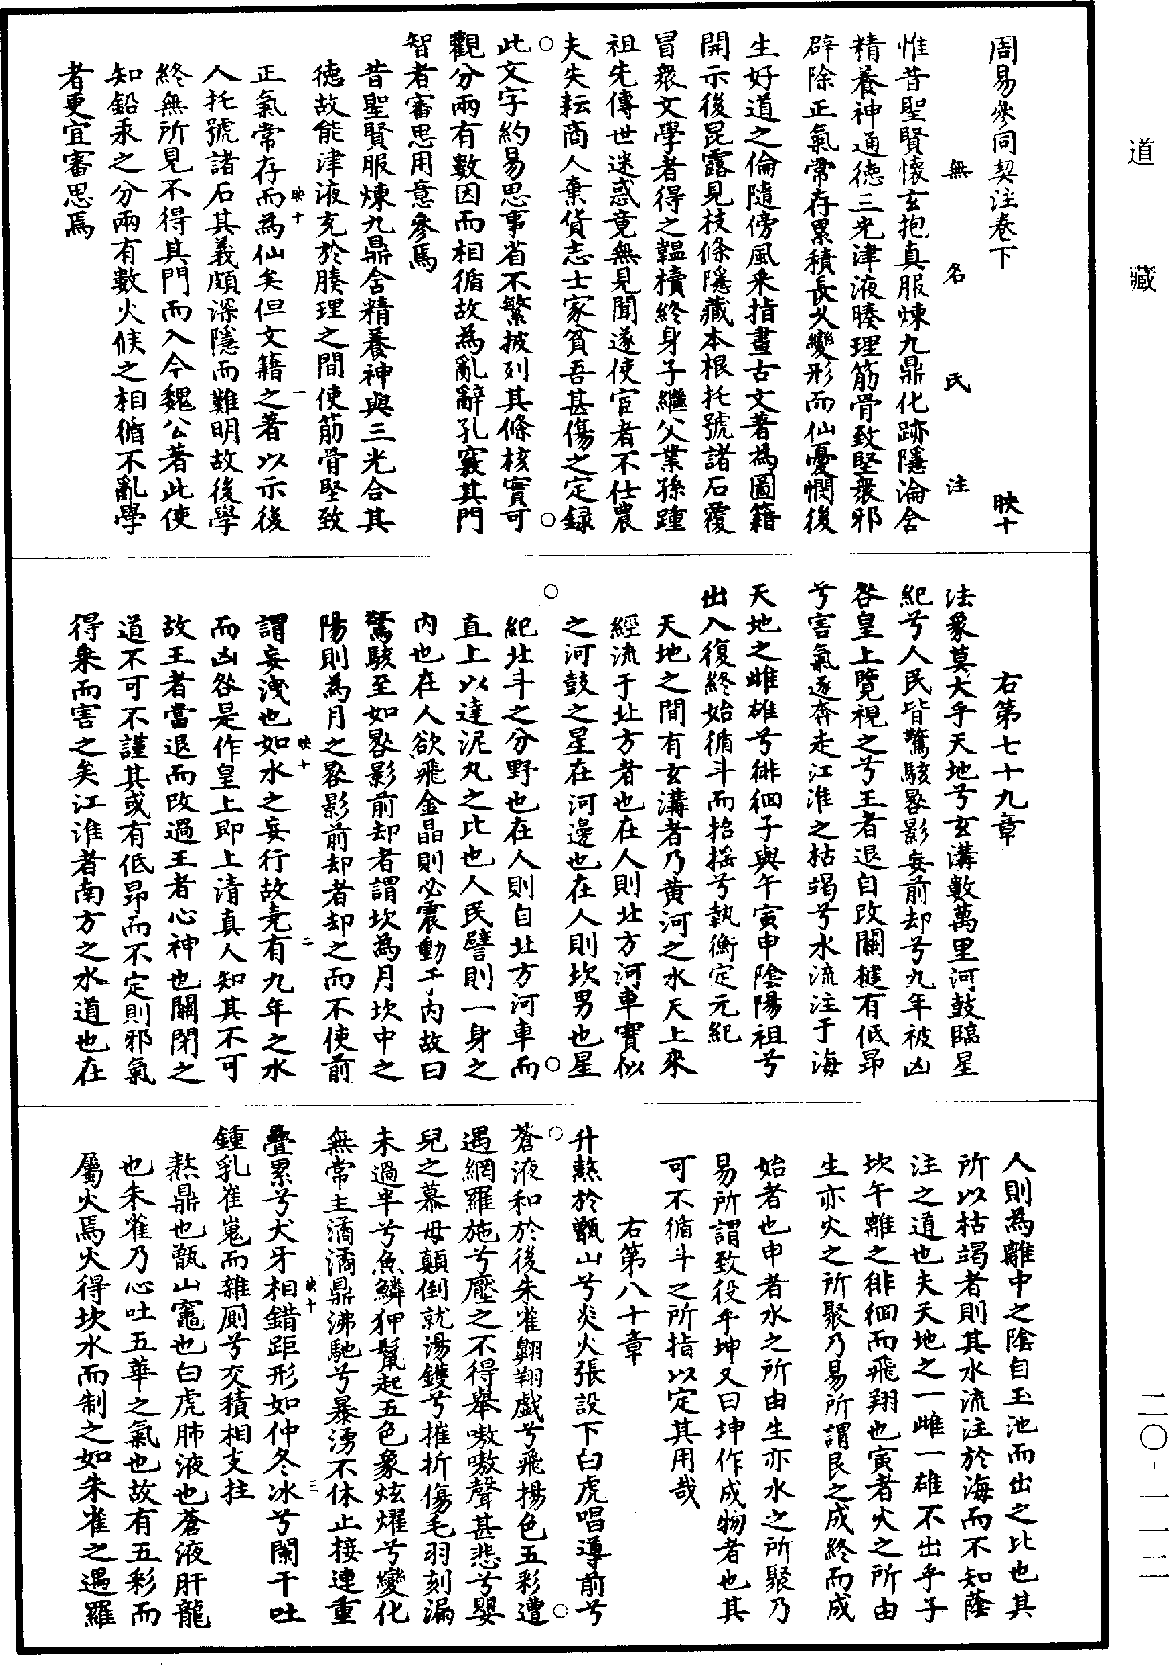 道藏
二〇-一一二
周易參同契注卷下 映十
無名氏注
惟昔聖賢懷玄抱真服煉九鼎化跡隱淪含
精養神通德三光津液腠理筋骨致堅衆邪
辟除正氣常存累積長久變形而仙憂憫後
生好道之倫隨傍風采指畫古文著為圖籍
開示後昆露見枝條隱藏本根托號諸石覆
冒衆文學者得之韞櫝終身子繼父業孫踵
祖先傳世迷惑竟無見聞遂使宦者不仕農
夫失耘商人棄貨志士家貧吾甚傷之定録
此文字約易思事省不繁披列其條核實可
觀分兩有數因而相循故為亂辭孔竅其門
智者審思用意參焉
昔聖賢服煉九鼎含精養神與三光合其
德故能津液充於腠理之間使筋骨堅致
正氣常存而為仙矣但文籍之著以示後
人托號諸石其義頗深隱而難明故後學
終無所見不得其門而入今魏公著此使
知鉛汞之分兩有數火候之相循不亂學
者更宜審思焉
映十 一
右第七十九章
法象莫大乎天地兮玄溝數萬里河鼓臨星
紀兮人民皆驚駭晷影妄前却兮九年被凶
咎皇上覽視之兮王者退自改關楗有低昂
兮害氣遂奔走江淮之枯竭兮水流注于海
天地之雌雄兮徘徊子與午寅申陰陽祖兮
出入復終始循斗而招搖兮執衡定元紀
天地之間有玄溝者乃黄河之水天上來
經流于北方者也在人則北方河車寶似
之河鼓之星在河邊也在人則坎男也星
紀北斗之分野也在人則自北方河車而
直上以達泥丸之比也人民譬則一身之
內也在人欲飛金晶則必震動于內故曰
驚駭至如晷影前却者謂坎為月坎中之
陽則為月之晷影前却者却之而不使前
謂妄洩也如水之妄行故堯有九年之水
而凶咎是作皇上即上清真人知其不可
故王者當退而改過王者心神也關閉之
道不可不謹其或有低昂而不定則邪氣
得乘而害之矣江淮者南方之水道也在
映十 二
人則為離中之陰自玉池而出之比也其
所以枯竭者則其水流注於海而不知蔭
注之道也夫天地之一雌一雄不出乎子
坎午離之徘徊而飛翔也寅者火之所由
生亦火之所聚乃易所謂艮之成終而成
始者也申者水之所由生亦水之所聚乃
易所謂致役乎坤又曰坤作成物者也其
可不循斗之所指以定其用哉
右第八十章
升熬於甑山兮炎火張設下白虎唱導前兮
蒼液和於後朱雀翱翔戲兮飛揚色五彩遭
遇網羅施兮壓之不得舉嗷嗷聲甚悲兮嬰
兒之慕母顛倒就湯鑊兮摧折傷毛羽刻漏
未過半兮魚鱗狎鬣起五色象炫燿兮變化
無常主潏潏鼎沸馳兮暴湧不休止接連重
疊累兮犬牙相錯距形如仲冬冰兮闌干吐
鍾乳崔嵬而雜厠兮交積相支拄
熬鼎也甑山竈也白虎肺液也蒼液肝龍
也朱雀乃心吐五華之氣也故有五彩而
屬火焉火得坎水而制之如朱雀之遇羅
映十 三